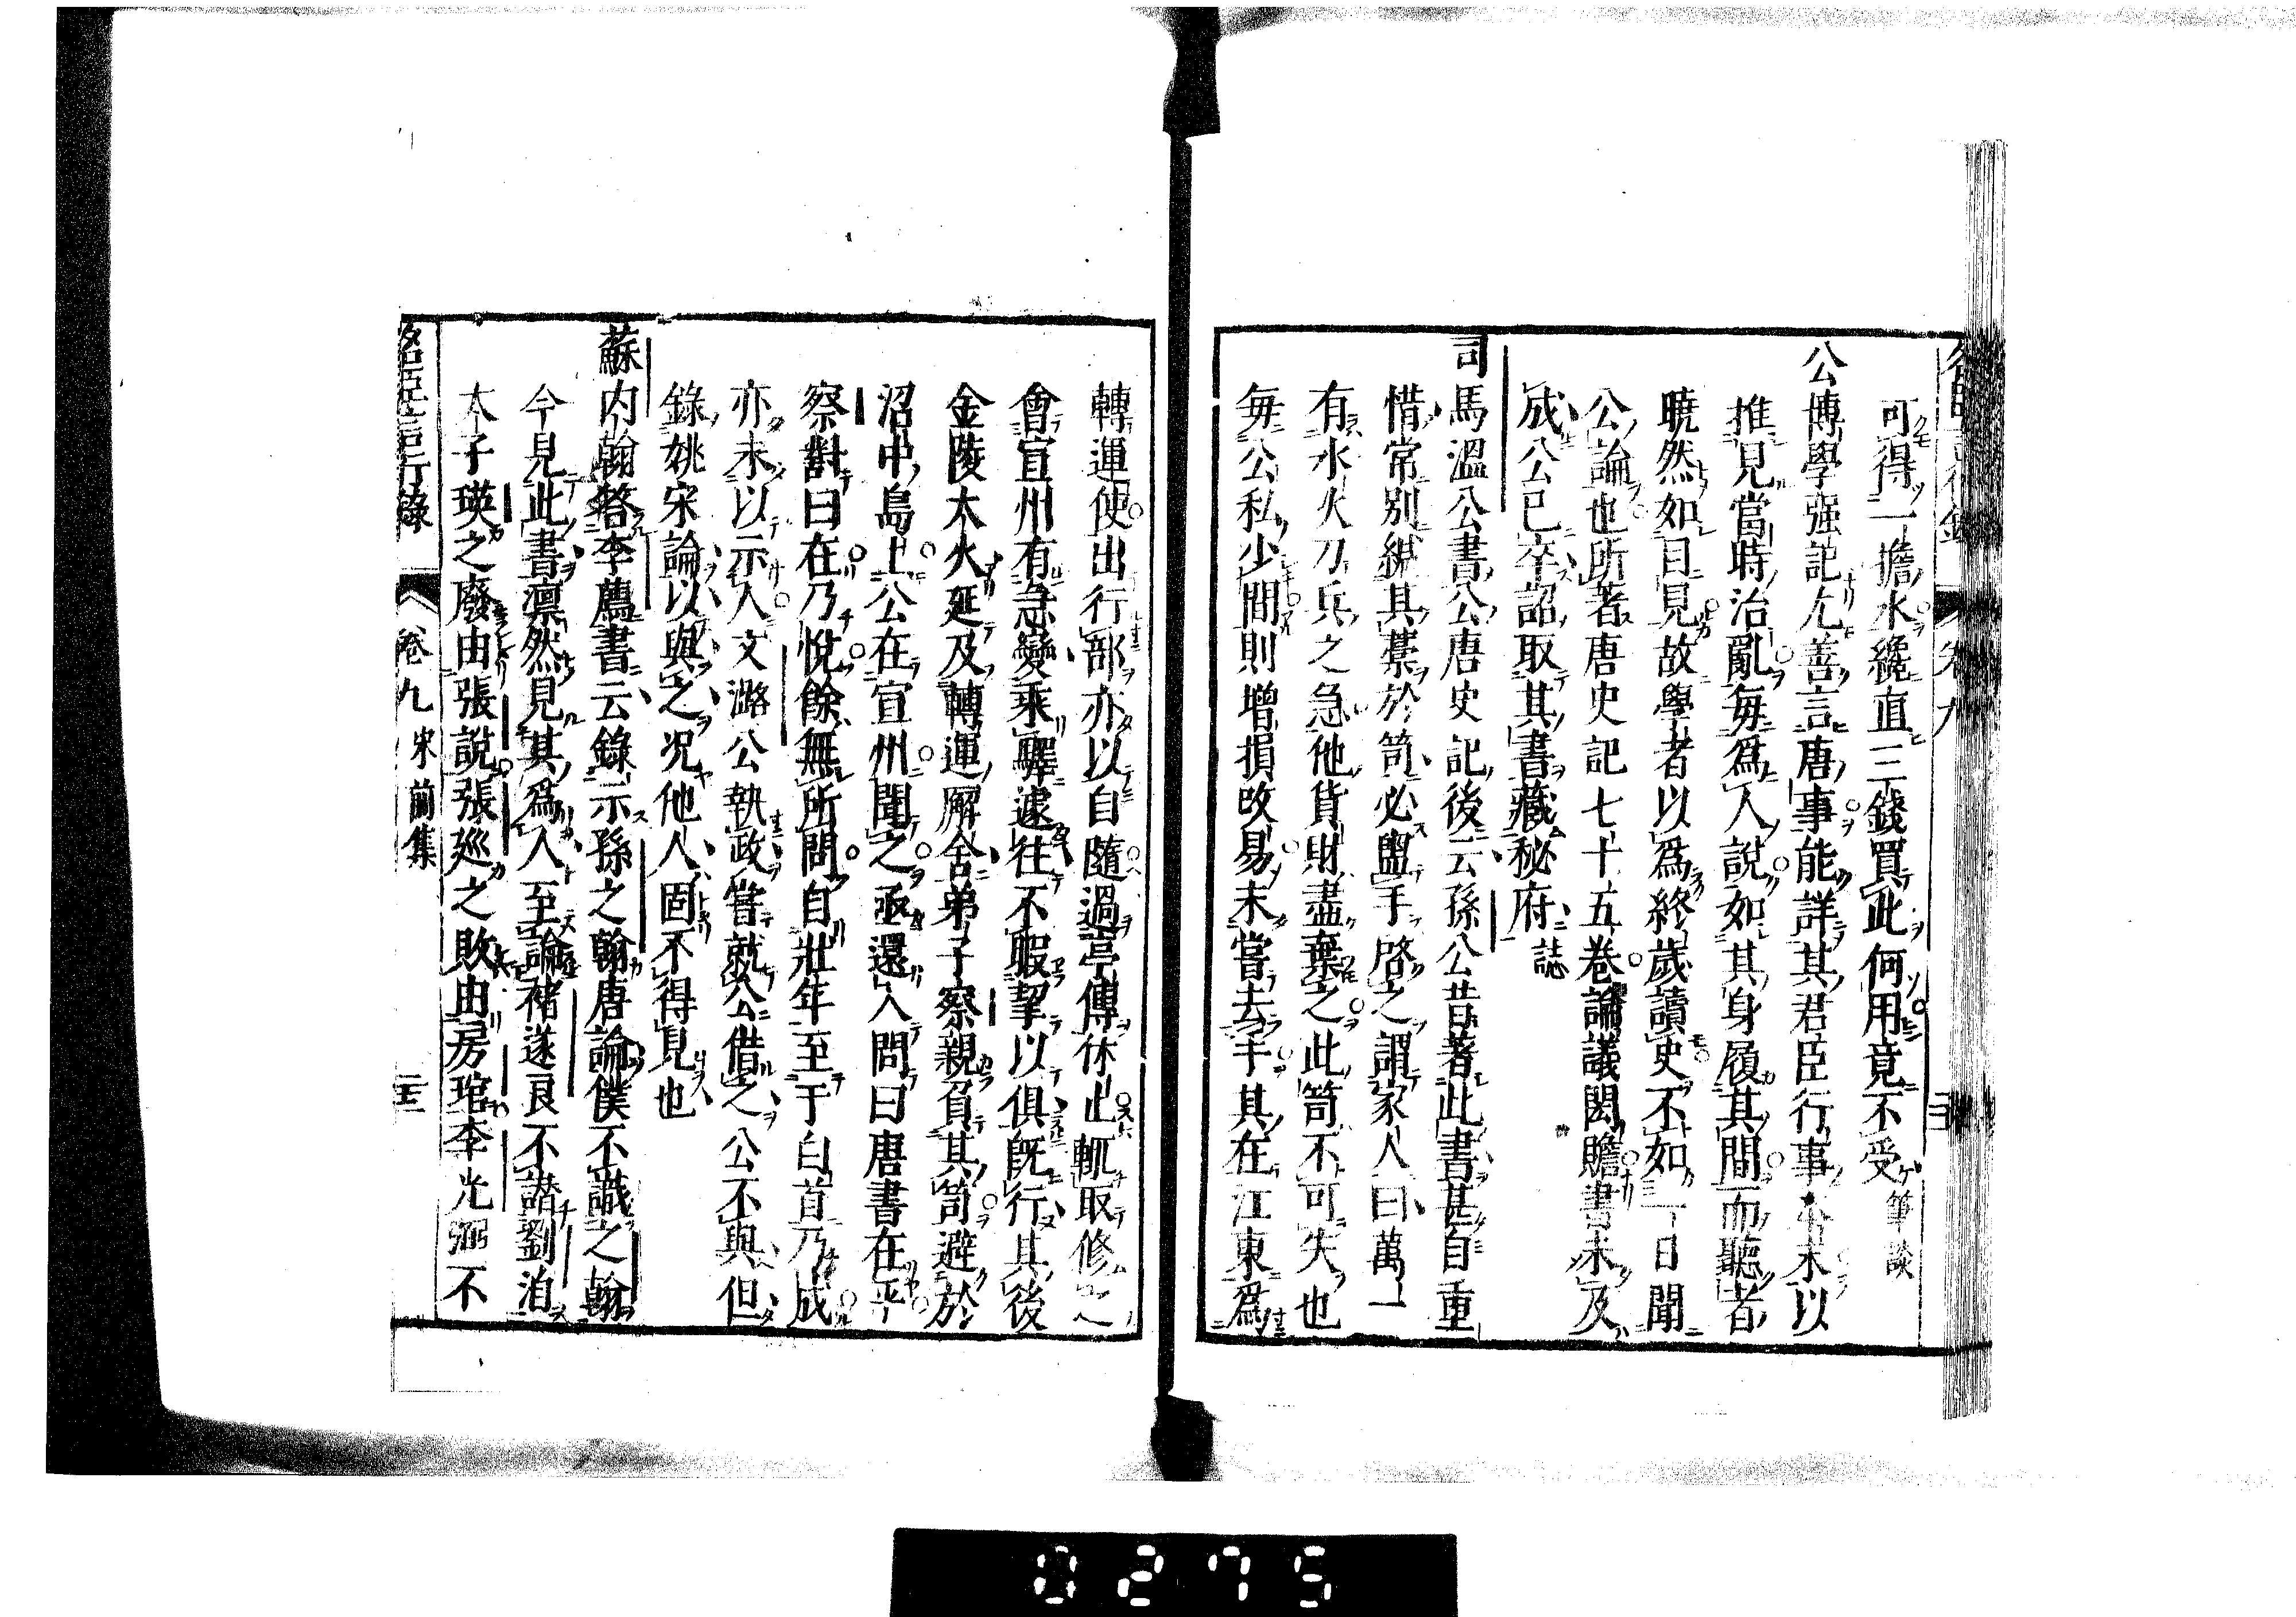 可得一擔水纔直三錢買此何用竟不受筆談
公博學强記尤善言唐事能詳其君臣行事本末以
推見當時治亂每爲人說如其身履其間而聽者
曉然如目見故學者以爲終歲讀史不如一日聞
公論也所著唐史記七十五卷論議閎贍書未及
成公已卒詔取其書藏秘府誌
司馬溫公書公唐史記後云孫公昔著此書甚自重
惜常別緘其藁於笥必盥手啓之謂家人曰萬一
有水火刀兵之急他貨財盡棄之此笥不可失也
每公私少間則增損改易未嘗去手其在江東爲
轉運使出行部亦以自隨過亭傳休止輒取修之
會宣州有急變乘驛遽往不暇挈以俱既行其後
金陵大火延及轉運廨舍弟子察親負其笥避於
沼中島上公在宣州聞之亟還入問曰唐書在乎
察對曰在乃悅餘無所問自壯年至于白首乃成
亦未以示人文潞公執政嘗就公借之公不與但
錄姚宋論以與之况他人固不得見也
蘇内翰答李廌書云錄示孫之翰唐論僕不識之翰
今見此書凛然見其爲人至論褚遂良不譖劉洎
太子瑛之廢由張說張巡之敗由房琯李光弼不
名臣言行錄 卷九 宋前集